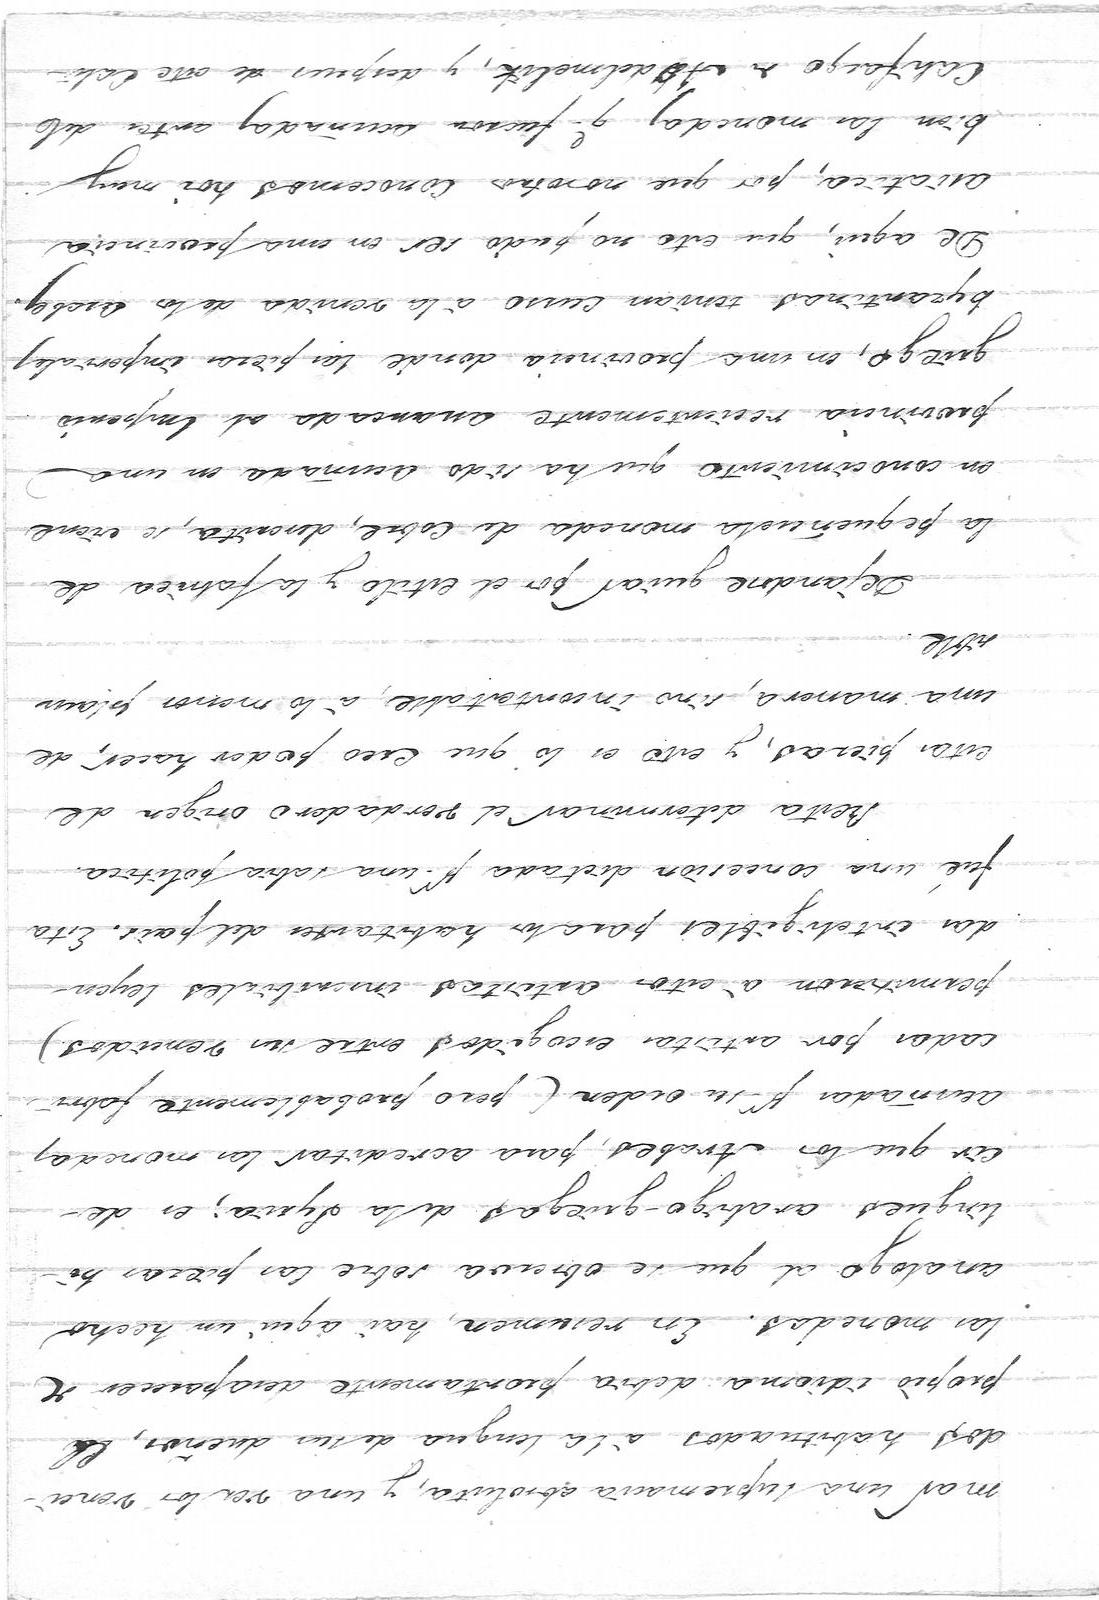 mar una supremacia absoluta, y una vez los venci-
dos habituados á la lengua de sus dueños, la
propio idioma debia prontamente desaparecer de
las monedas. En resumen, hai aqui un hecho
analogo al que se observa sobre las piezas bi-
lingues arabigo-griegas de la Syria; es de-
cir que los Arabes, para acreditar las monedas
acuñadas pr su orden (pero probablemente fabri-
cadas por artistas escogidos entre sus vencidos)
permitieron á estos artistas inscribirles leyen-
das inteligibles para los habitantes del pais. Esta
fué una concesion dictada pr una sabia politica.
Resta determinar el verdadero origen de
estas piezas, y esto es lo que creo poder hacer, de
una manera, sino incontestable, á lo menos plau
sible.
Dejandose guiar por el estilo y la fabrica de
la pequeñuela moneda de cobre, descrita, se viene
en conocimiento que ha sido acuñada en una
provincia recientemente arrancada al Imperio
griego, en una provincia donde las piezas imperiales
byzantinas tenian curso á la venida de los Arabes.
De aqui, que esto no pudo ser en una provincia
asiatica, por que nosotros conocemos hoi muy
bien las monedas qe fueron acuñadas antes del
Califazgo de Abdelmelik, y despues de este Cali-